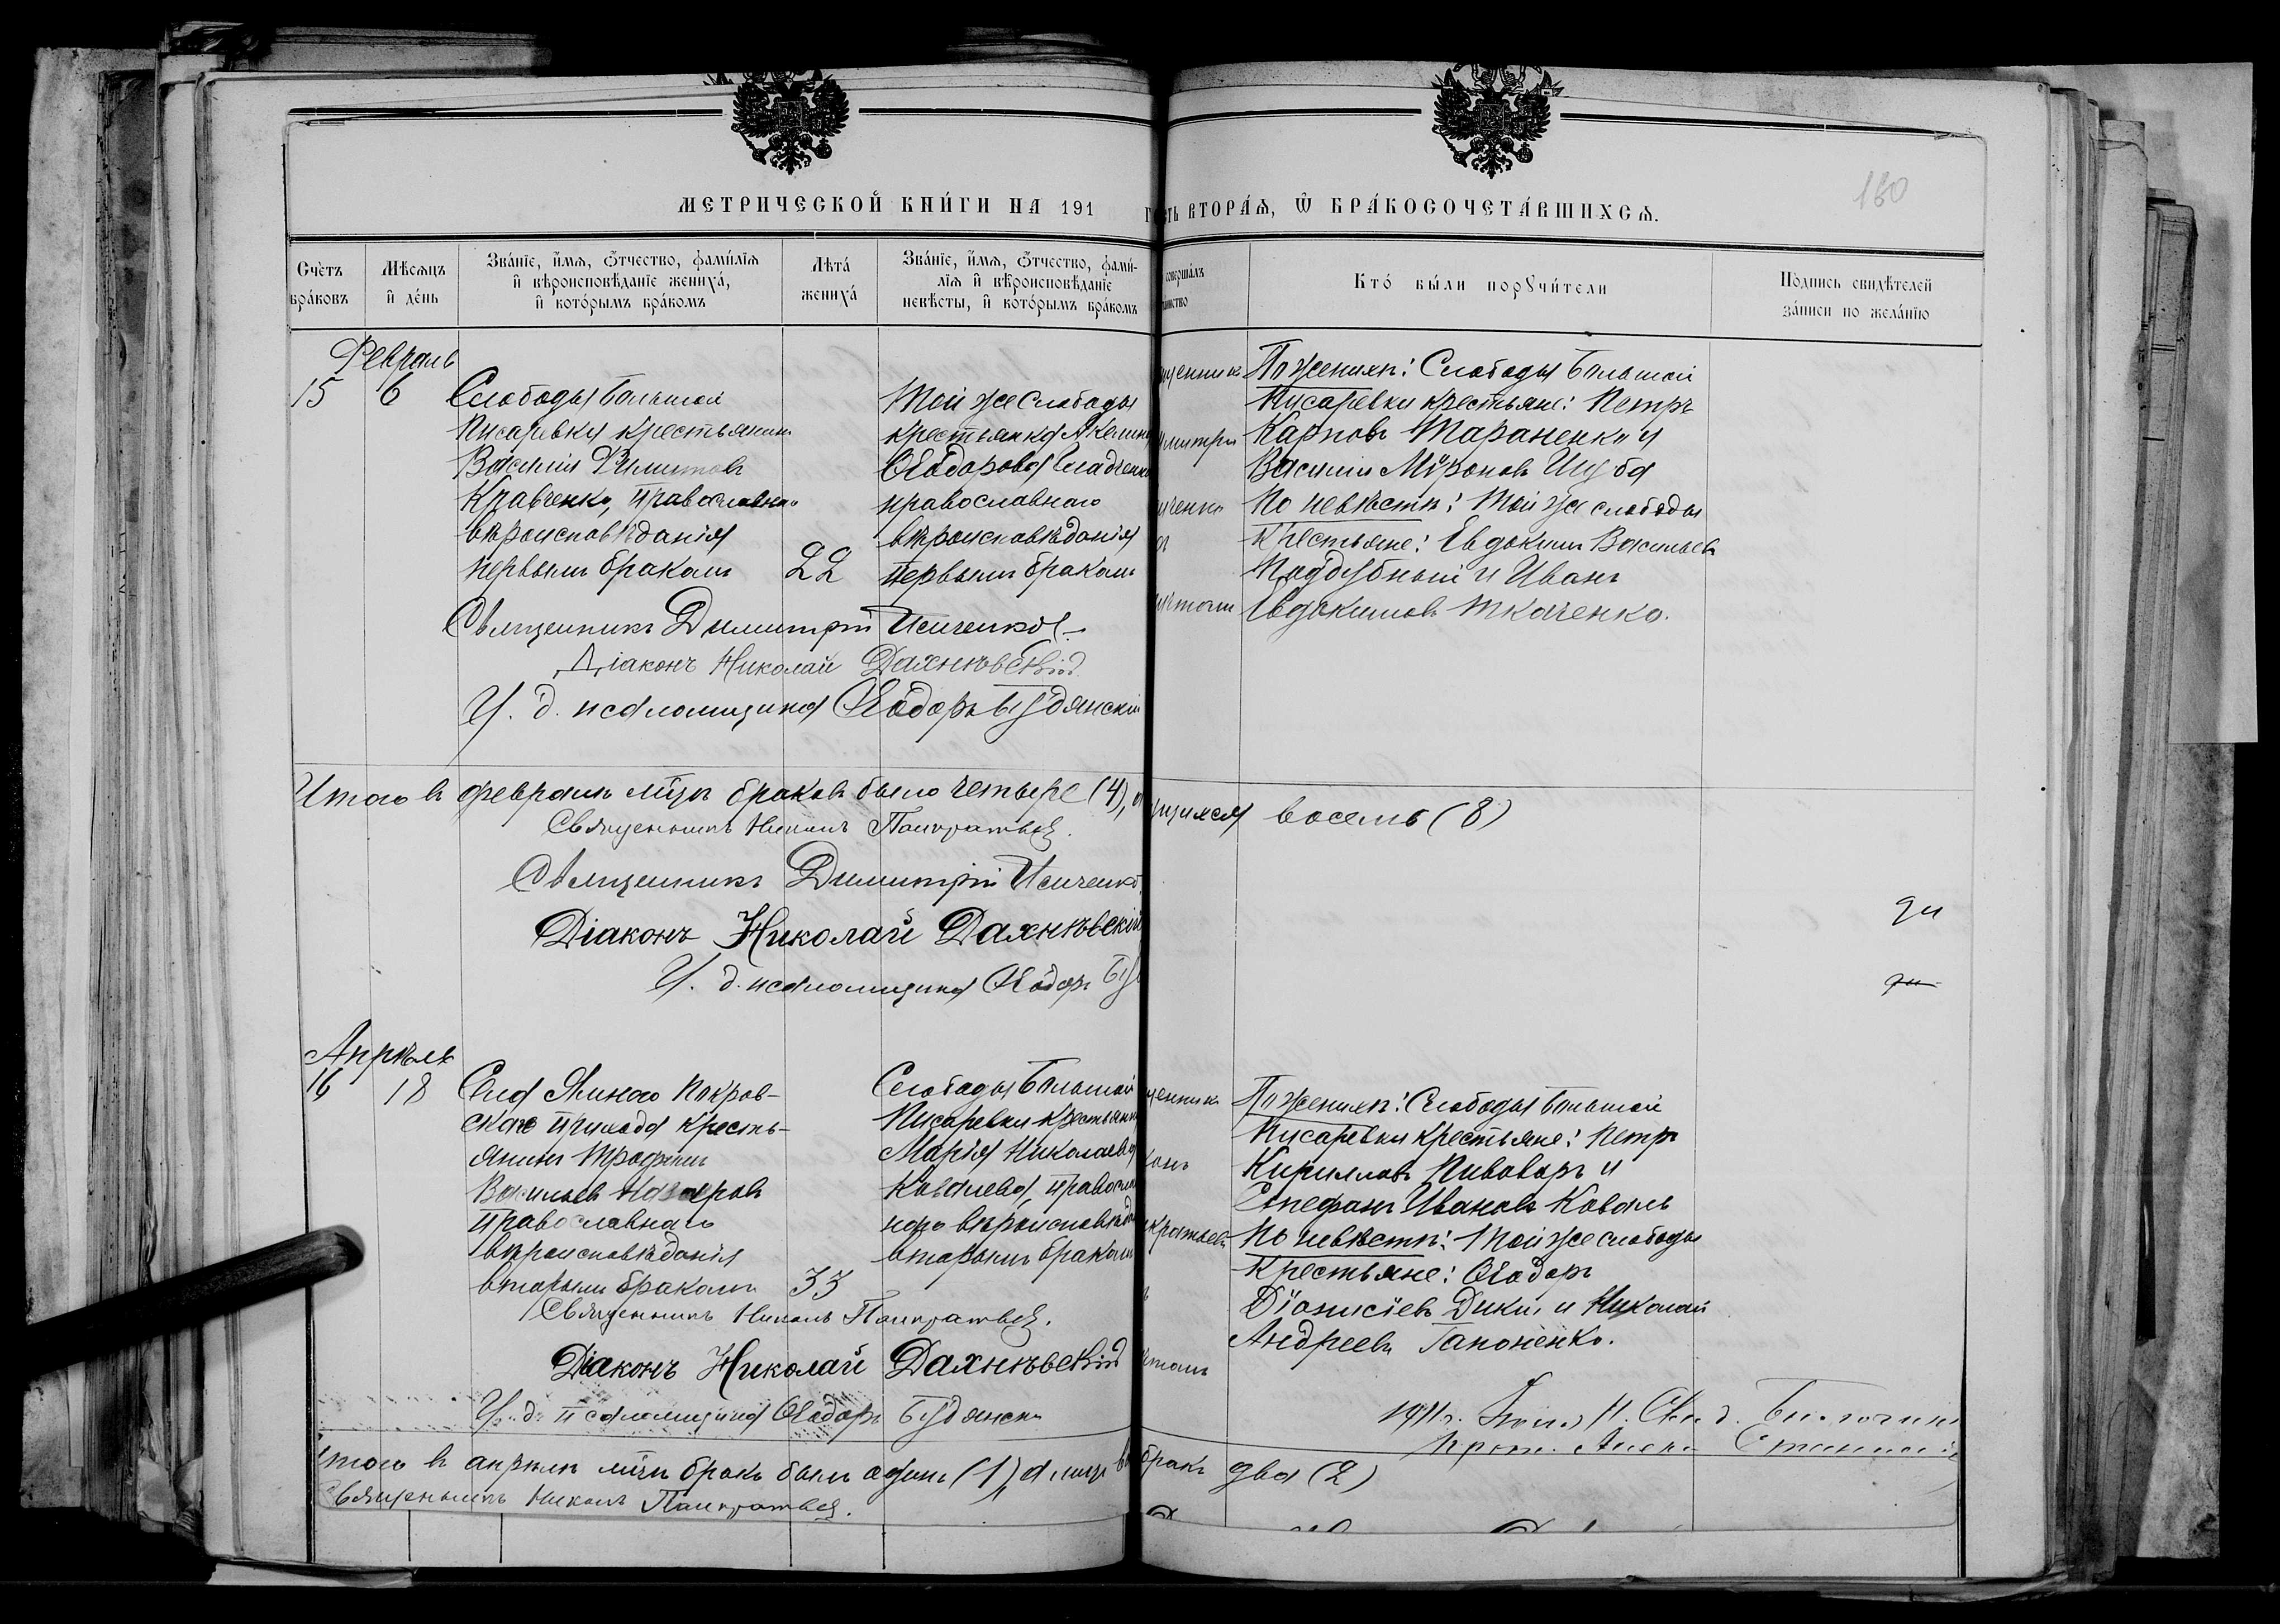 160
МЕТРИЧЕСКОЙ КНИ́ГИ НА 191
ВТОРА́Я, Ѿ БРА́КОСОЧЕТА́ВШИХСЯ.
Сче́тъ бра́ковъ
Мѣ́сяцъ и де́нь
Зва́нїе, и́мя, ѻ́тчество, фами́лїя и вѣроисповѣ́данїе жениха̀, и кото́рымъ бра́комъ
Лѣта̀ жениха̀
Зва́нїе, и́мя, ѻ́тчество, фами́лїя и вѣроисповѣ́данїе невѣ́сты, и кото́рымъ бра́комъ
соверша́лъ
Кто̀ бы́ли порꙋчи́тели
По́дпись свидѣ́телей за́писи по жела́нїю
Февраль
15 6
Слободы Большой
Писаревки крестьянинъ
Василій Филиповъ
Кравченко, православнаго
вѣроисповѣданія
первымъ бракомъ
22
Той же слободы
крестьянка Акелина
Ѳеодорова Гладченко
православнаго
вѣроисповѣданія
первымъ бракомъ
По женихѣ: Слободы Большой
Писаревки крестьяне: Петръ
Карповъ Тараненко и
Василій Мѵроновъ Шуба
По невѣстѣ: Той же слободы
Крестьяне: Евдокимъ Васильевъ
Поддубный и Иванъ
Евдокимовъ Ткаченко.
Священникъ Димитрій Исиченко
Діаконъ Николай Дахнѣвскій
И. д. псаломщика Ѳеодоръ Будянскій
Итого въ февралѣ мѣсяцѣ браковъ было четыре (4),
восемь (8)
Священникъ Никол Панкратьевъ.
Священникъ Димитрій Исиченко
Діаконъ Николай Дахнѣвскій
И. д. псаломщика Ѳеодоръ
Апрѣль
16 18
Села Янкова Покров-
скаго прихода кресть-
янинъ Трофимъ
Васильевъ Назаровъ
православнаго
вѣроисповѣданія
вторымъ бракомъ
33
Слободы Большой
Писаревки крестьянка
Марія Николаева
Ковалева, православ
наго вѣроисповѣдан
вторымъ бракомъ
По женихѣ: Слободы Большой
Писаревки крестьяне: Петръ
Кирилловъ Пивоваръ и
Стефанъ Ивановъ Коваль
По невѣстѣ: Той же слободы
Крестьяне: Ѳеодоръ
Діонисіевъ Дикій и Николай
Андреевъ Гапоненко.
Священникъ Никол Панкратьевъ.
Діаконъ Николай Дахнѣвскій
И. д. псаломщика Ѳеодоръ Будянскій
Итого въ апрѣлѣ мѣсяцѣ бракъ былъ одинъ (1), а лицъ
бракъ два (2)
Священникъ Никол Панкратьевъ.